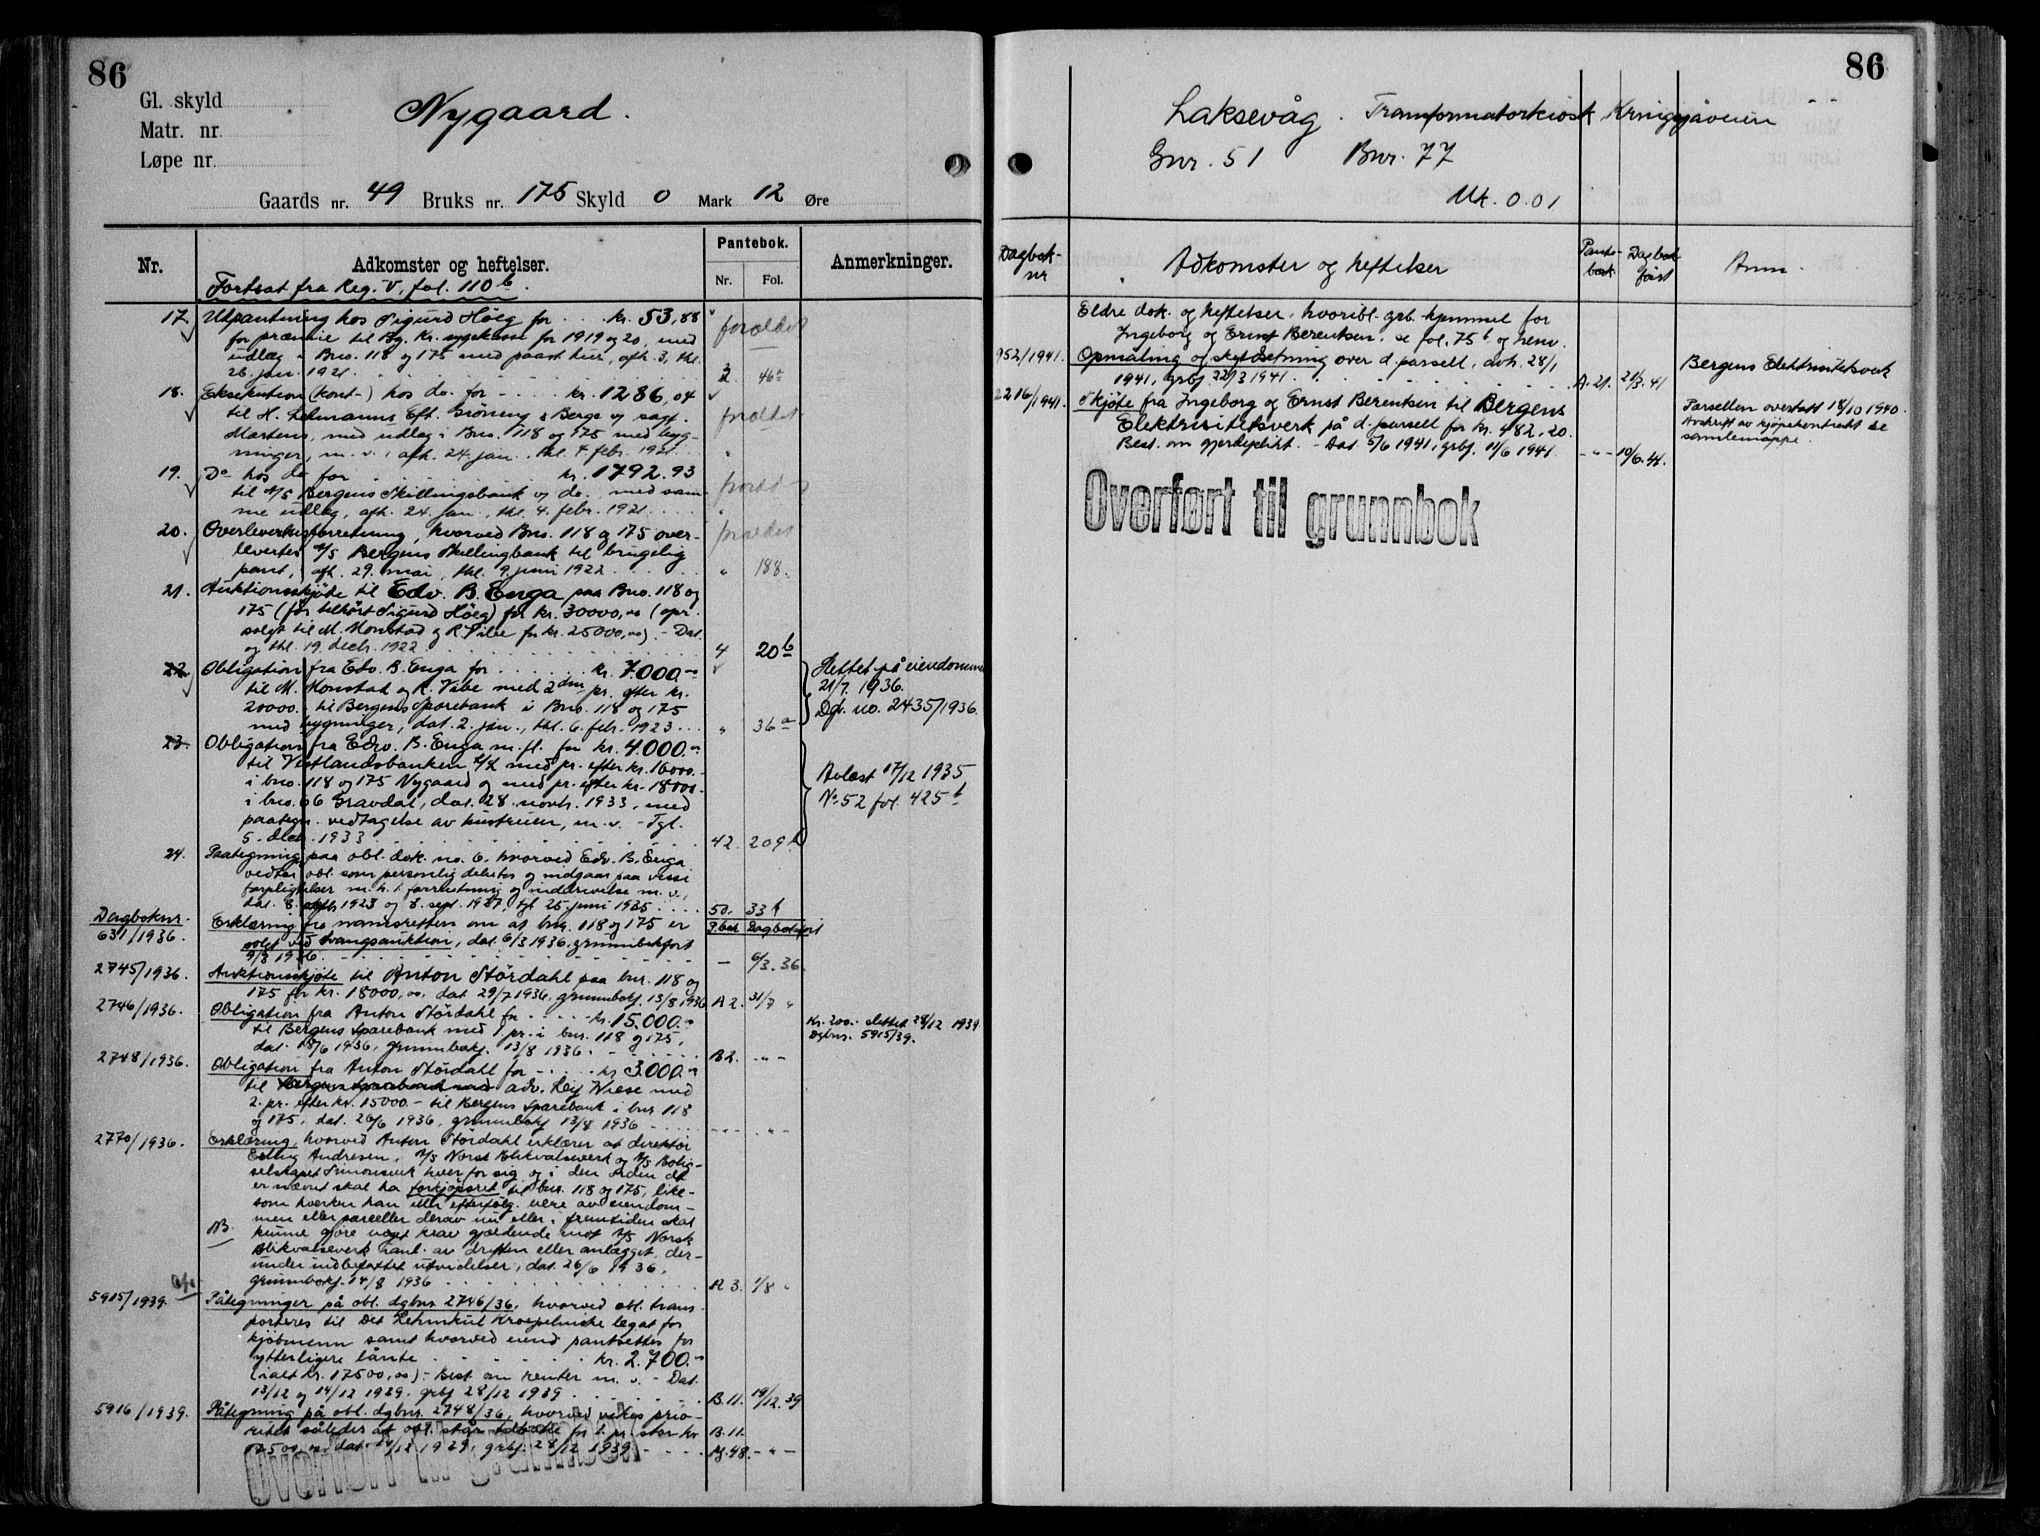 86
Gl. skyld
Matr. nr.
Løpe nr.
Nygaard.
Gaards nr. 49 Bruks nr. 175 Skyld 0 Mark 12 Øre
Nr.
Adkomster og heftelser.
Pantebok.
Nr. Fol.
Anmerkninger.
Fortsat fra Reg. V, fol. 110 b.
17. Utpantning hos Sigurd Höeg for kr. 53,88
for præmie til Bg. Kr. sygekasse for 1919 og 20, med
utlæg i Bno. 118 og 175 med paast. hus, afh. 3, thl.
26. jan. 1921. 3 46
forældet
18. Eksekution (kont-) hos do. for kr. 1286,04
til H. Lehmanns Eft. Gröning & Berge og sagf.
Martens, med udlæg i Bno. 118 og 175 med byg-
ninger, m. v., afh. 24. jan., thl. 4 febr. 1921
forældet
19. Do hos do for kr. 1792.93
til A/S Bergens Skillingsbank og do., med sam-
me udlæg, afh. 24. jan., thl. 4. febr. 1921.
20. Overleverelsesforretning, hvorved Bno. 118 og 175 over-
levertes A/S Bergens Skillingbank til brugelig
pant, afh. 29. mai, thl. 9. juni 1922 " 188.
21. Auktionsskjöte til Edv. B. Enga paa Bno. 118 og
175 (för tilhört Sigurd Höeg) for kr. 30000,00 (opr.
solgt til M. Monstad og R. Vibe for kr. 25000,00). - Dat.
og thl. 19. decb. 1922 4 20 b
22. Obligation fra Edv. B. Enga for kr. 7.000.-
til M. Monstad og R. Vibe med 2den pr. efter kr.
20000.- til Bergens Sparebank i Bno. 118 og 175
med bygninger, dat. 2. jan., thl. 6. febr. 1923 " 36 a
Slettet på eiendommen
21/7. 1936.
Dgb. no. 2435/1936.
23. Obligation fra Edv. B. Enga m. fl. for kr. 4.000.-
til Vestlandsbanken A/S med pr. efter kr. 16000.-
i bno. 118 og 175 Nygaard og med pr. efter kr. 18000.-
i bno. 66 Gravdal, dat. 28. novb. 1933, med
paategn. vedtagelse av hustruen, m. v. - Tgl.
5. decb. 1933 42. 209 b
Avlæst 17/12 1935
No. 52 fol. 425 b
24. Paategning paa obl. dok. no. 6, hvorved Edv. B. Enga
vedtar obl. som personlig debitor og indgaar paa visse
forpligtelser m. h. t. forrentning og inddrivelse m. v.,
dat. 8. 1923 og 8. sept. 1927, tgl. 25. juni 1935 50. 33 b
Dagboknr.
P.bok Dagbokført
631/1936. Erklæring fra namsretten om at bnr. 118 og 175 er
solgt ved tvangsauktion, dat. 6/3 1936, grunnbokført
9/3 1936. — 6/3. 36.
2745/1936. Auktionsskjöte til Anton Stördahl paa bnr. 118 og
175 for kr. 18000,00, dat 29/7 1936, grunnbokf. 13/8 1936 A 2. 31/7 "
2746/1936. Obligation fra Anton Stördahl for kr. 15.000.-
til Bergens Sparebank med 1 pr. i bnr. 118 og 175,
dat. 18/6 1936, grunnbokf. 13/8 1936. B2. - " -
Kr. 200.- slettet 28/12 1939
Dgbnr. 5915/39.
2748/1936. Obligation fra Anton Stördahl for kr 3.000.-
til Bergens Sparebank med adv. Leif Wiese med
2. pr. efter kr. 15000.- til Bergens Sparebank i bnr. 118
og 175, dat. 26/6 1936, grunnbokf 13/8 1936
2770/1936. Erklæring, hvorved Anton Stördahl erklærer at direktör
Erling Andresen, A/S Norsk Blikvalseverk og A/S Bolig-
selskapet Simonsvik hver for sig og i den orden de
er nævnt skal ha forkjöpsret til bnr. 118 og 175, like-
som hverken han eller efterfölg. eiere av eiendom-
men eller parceller derav nu eller i fremtiden skal
NB. kunne gjöre noget krav gjældende mot A/S Norsk
Blikvalseverk i anl. av driften eller anlægget, der-
under indbefattet utvidelser, dat. 26/6 1936,
grunnbokf. 14/8 1936 A 3. 1/8 "
5915/1939. Påtegninger på obl. dgbnr 2746/36, hvorved obl. trans-
porteres til Det Lehmkul Kroepelinske legat for
kjöbmenn samt hvorved eiend. pantsettes for
ytterligere lånte kr. 2.700.-
(ialt kr. 17500,00). - Best om renter m. v. - Dat.
13/12 og 14/12 1939, grbf 28/12 1939. B.11. 19/12. 39
5916/1939. Påtegning på obl. dgbnr. 2748/36, hvorved vikes prio-
ritet således at obl. står tilbake for 1. pr. stor kr. B.11.
17500,00, dat. 14/12 1939, grbf. 28/12 1939 M.48. - " -
Overført til grunnbok
86
Laksevåg. Transformatorkiosk
Gnr. 51 Bnr. 77
Mk. 0.01
Dagbok-
nr
Adkomster og heftelser
Pante-
bok
Dagbok-
ført
Anm.
Eldre dok. og heftelser, hvoribl. grb. hjemmel for
Ingeborg og Ernst Berentsen, se fol. 75 b og henv.
952/1941. Opmåling og skyldsetning over d. parsell, avh. 28/1
1941, grbf 22/3 1941. A. 21. 21/3. 41
Bergens Elektrisitetsverk
2216/1941. Skjöte fra Ingeborg og Ernst Berentsen til Bergens
Elektrisitetsverk på d. parsell for kr. 482,20.
Best. om gjerdeplikt. - Dat. 5/6 1941, grbf. 11/6 1941. - " - 10/6. 41.
Parsellen overtatt 18/10 1940.
Avskrift av kjøpekontrakt se
samlemappe.
Overført til grunnbok